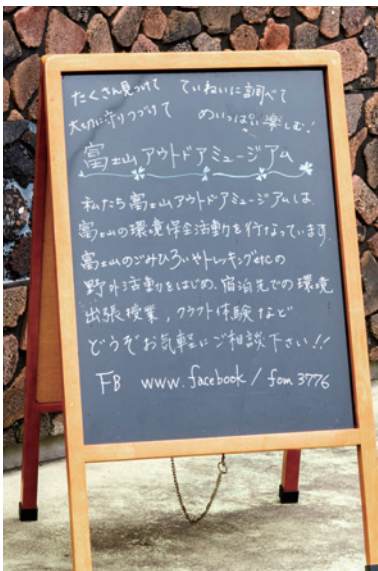 たくさん見つけて ていねいに調べて
大切に守りつづけて めいっぱい楽しむ!
富士山アウトドアミュージアム
私たち富士山アウトドアミュージアムは、
富士山の環境保全活動を行なっています。
富士山のごみひろいやトレッキングetcの
野外活動をはじめ、宿泊先での環境
出張授業、クラフト体験など
どうぞお気軽にご相談下さい!!
FB www.facebook/fom3776